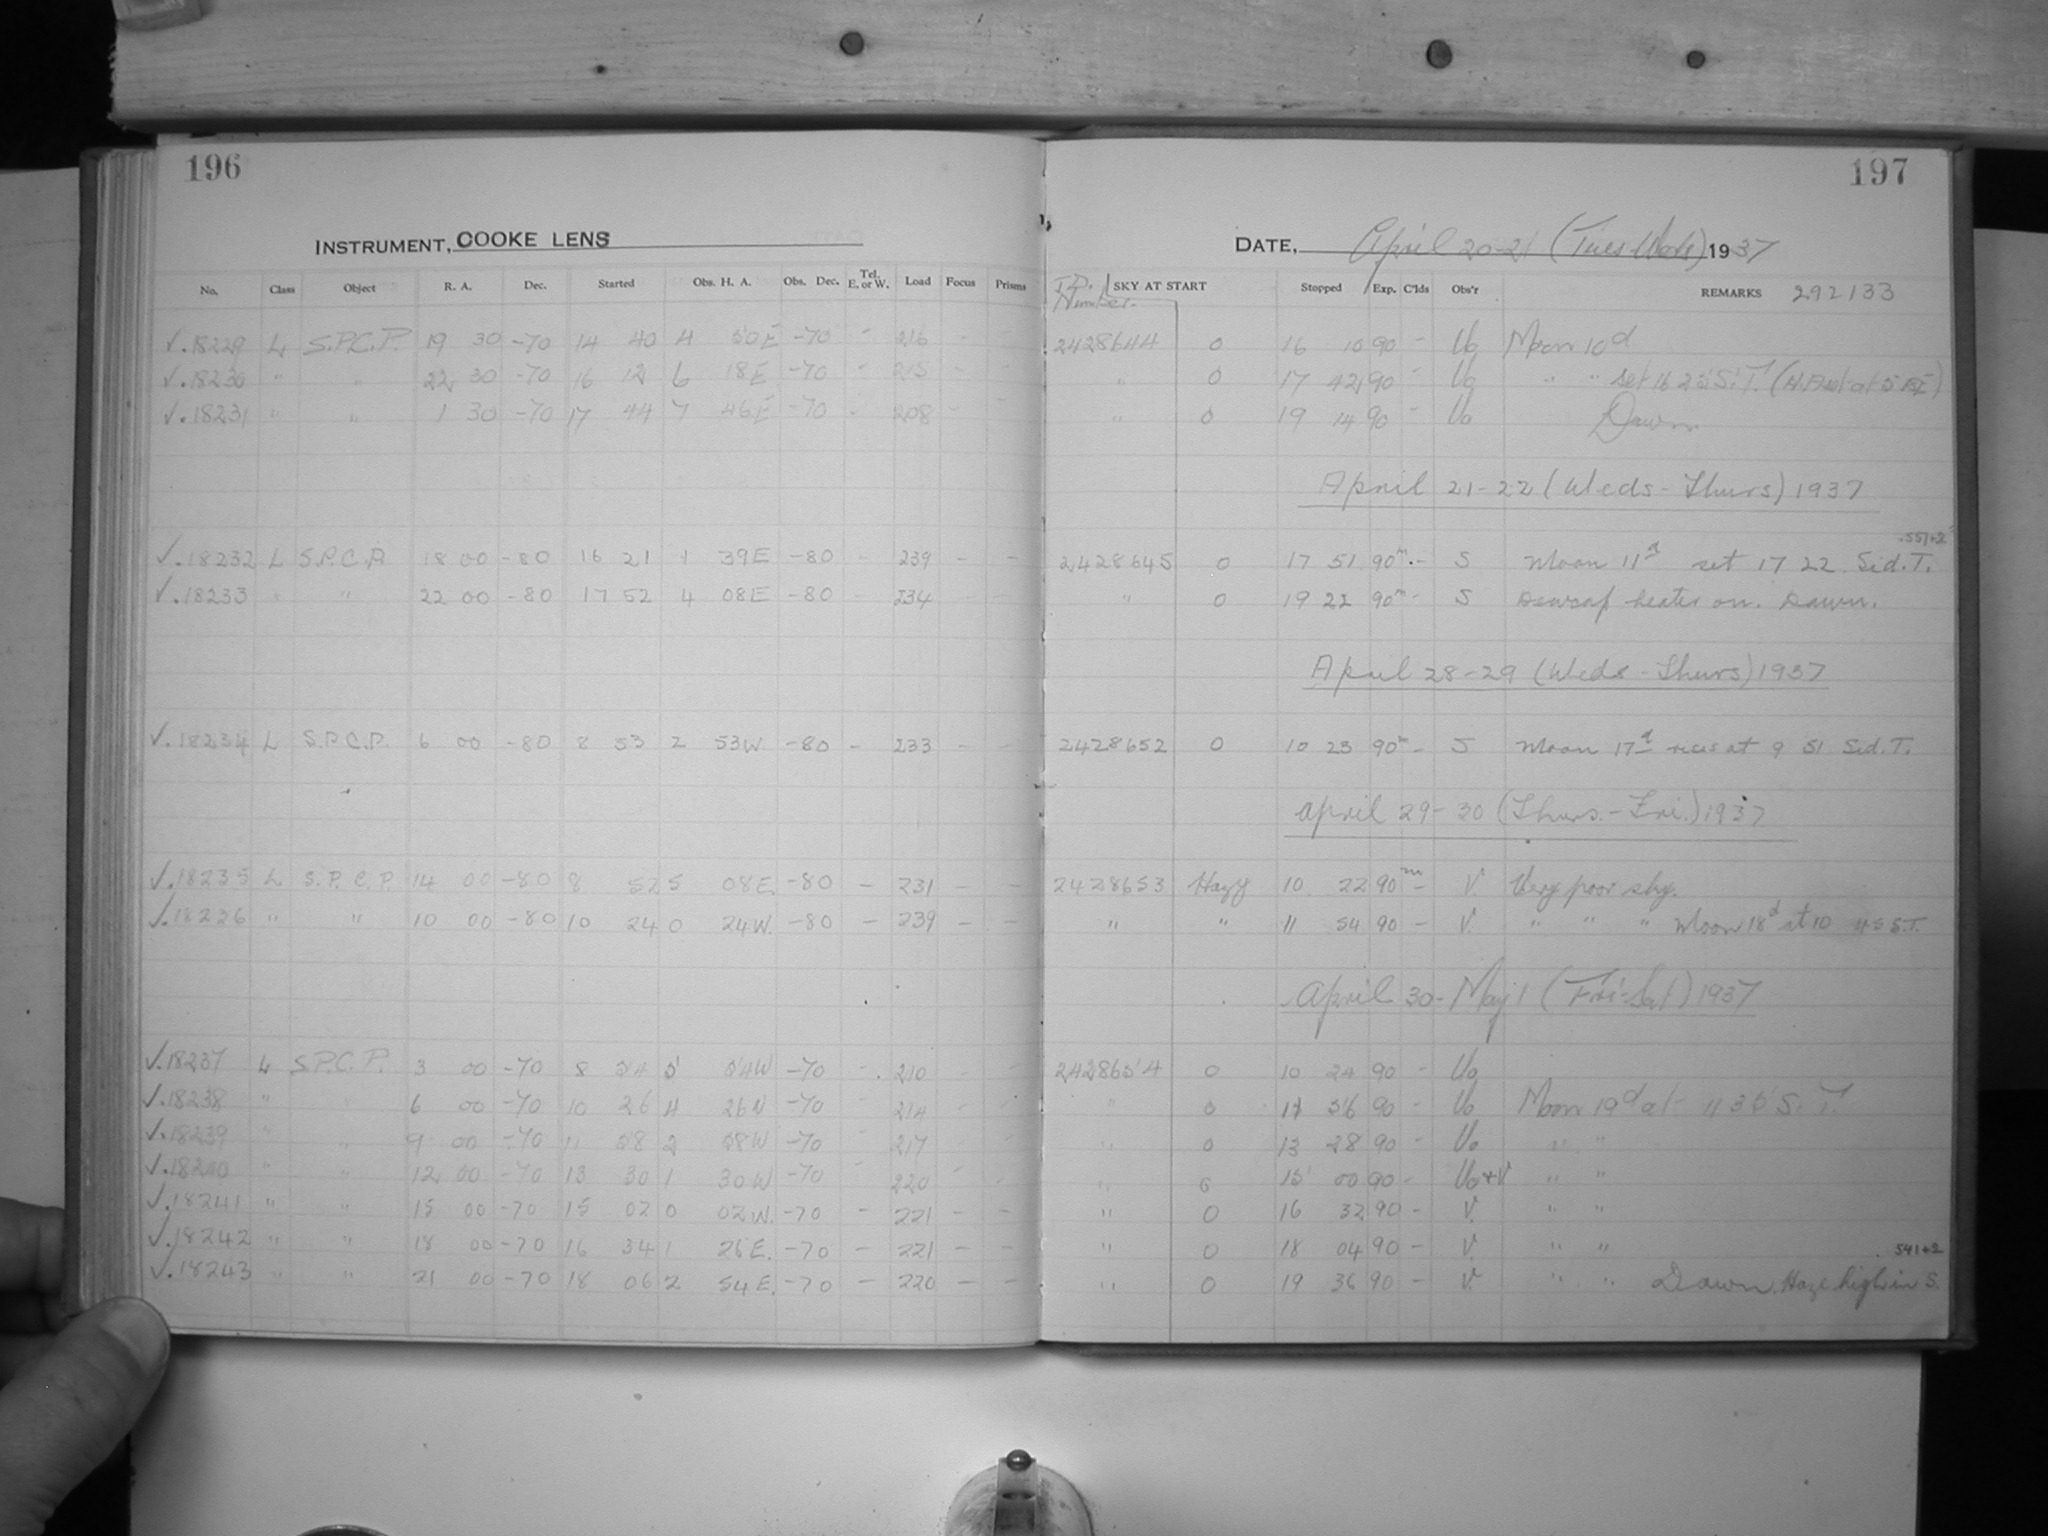 196
197
INSTRUMENT, COOKE LENS
DATE, April 20-21 (Tues-Weds) 1937
No. Class Object R. A. Dec. Started Obs. H. A. Obs. Dec. Tel. E. or W. Load Focus Prisms J.D. Number SKY AT START Stopped Exp. C'lds Obs'r REMARKS 292133
✓. 18229 L S.P.C.P. 19 30 -70 14 40 4 50E -70 - 216 - - 2428644 0 16 10 90 - Uo Moon 10d
✓. 18230 " " 22 30 -70 16 12 6 18E -70 - 215 - - " 0 17 42 90 - Uo " " set 16 25 S.T.
✓. 18231 " " 1 30 -70 17 44 7 46E -70 - 208 - - " 0 19 14 90 - Uo Dawn
April 21-22 (Weds-Thurs) 1937
551+2
✓. 18232 L S.P.C.P. 18 00 -80 16 21 1 39E -80 - 239 - - 2428645 0 17 51 90m - S Moon 11d set 17 22 Sid. T.
✓. 18233 " " 22 00 -80 17 52 4 08E -80 - 234 - - " 0 19 22 90m - S Dewcap heater on. Dawn.
April 28-29 (Weds-Thurs) 1937
✓. 18234 L S.P.C.P. 6 00 -80 8 53 2 53W. -80 - 233 - - 2428652 0 10 23 90m - S Moon 17d rises at 9 51 Sid. T.
April 29-30 (Thurs.-Fri.) 1937
✓. 18235 L S.P.C.P. 14 00 -80 8 52 5 08E -80 - 231 - - 2428653 Hazy 10 22 90m - V. Very poor sky.
✓. 18236 " " 10 00 -80 10 24 0 24W. -80 - 239 - - " " 11 54 90 - V. " " " Moon 18d at 10 45 S.T.
April 30-May 1 (Fri-Sat) 1937
✓. 18237 L S.P.C.P. 3 00 -70 8 54 5 54W -70 - 210 - - 2428654 0 10 24 90 - Uo
✓. 18238 " " 6 00 -70 10 26 4 26W -70 - 214 - - " 0 11 56 90 - Uo Moon 19d at 11 35 S.T.
✓. 18239 " " 9 00 -70 11 58 2 58W -70 - 217 - - " 0 13 28 90 - Uo " "
✓. 18240 " " 12 00 -70 13 30 1 30W -70 - 220 - - " 0 15 00 90 - Uo+V " "
✓. 18241 " " 15 00 -70 15 02 0 02W. -70 - 221 - - " 0 16 32 90 - V. " "
✓. 18242 " " 18 00 -70 16 34 1 26E. -70 - 221 - - " 0 18 04 90 - V. " "
541+2
✓. 18243 " " 21 00 -70 18 06 2 54E. -70 - 220 - - " 0 19 36 90 - V. " " Dawn. Haze high in S.